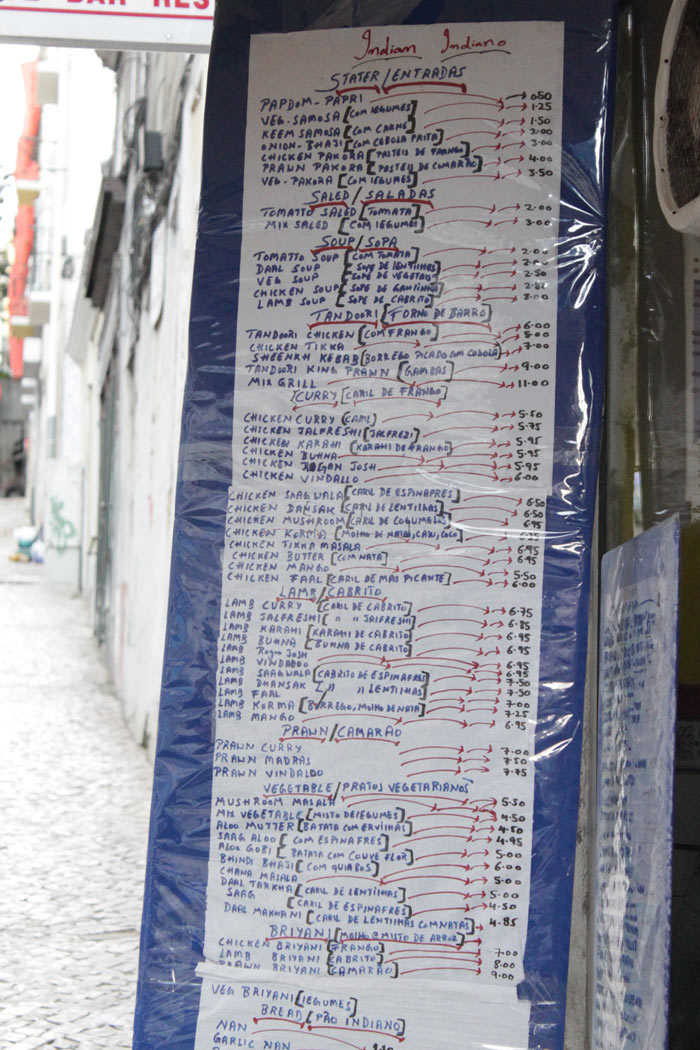 BAR RES
Indian Indiano
STATER/ENTRADAS
PAPDOM-PAPRI 0.50
VEG-SAMOSA [COM LEGUMES] 1.25
KEEM SAMOSA [COM CARNE] 1.50
ONION-BHAJI [COM CEBOLA FRITA] 2.00
CHICKEN PAKORA [PASTEIS DE FRANGO] 3.00
PRAWN PAKORA [PASTEIS DE CAMARAO] 4.00
VEG-PAKORA [COM LEGUMES] 3.50
SALED/SALADAS
TOMATTO SALED [TOMATA] 2.00
MIX SALED [COM LEGUMES] 3.00
SOUP/SOPA
TOMATTO SOUP [COM TOMATA] 2.00
DAAL SOUP [SOPE DE LENTILHAS]
VEG SOUP [SOPE DE VEGETAIS] 2.50
CHICKEN SOUP [SOPE DE]
LAMB SOUP [SOPE DE CABRITO] 3.00
TANDOORI [FORNO DE BARRO]
TANDOORI CHICKEN [COM FRANGO] 6.00
CHICKEN TIKKA 5.00
SHEENKH KEBAB [BORREGO PICADO COM COBOLA] 7.00
TANDOORI KING PRAWN [GAMBAS] 9.00
MIX GRILL 11.00
[CURRY [CARIL DE FRANGO]
CHICKEN CURRY [CARIL] 5.50
CHICKEN JALFRESHI [JALFREZI] 5.75
CHICKEN KARAHI [KARAHI DE FRANGO] 5.95
CHICKEN BUHNA 5.95
CHICKEN ROGAN JOSH 5.95
CHICKEN VINDALLO 6.00
CHICKEN SAAGWALA [CARIL DE ESPINAFRES] 6.50
CHICKEN DANSAK [CARIL DE LENTILHAS] 6.50
CHICKEN MUSHROOM [CARIL DE COGUMELOS] 6.95
CHICKEN KORMA [MOLHO DE NATAS, CAJU, COCO]
CHICKEN TIKKA MASALA 6.95
CHICKEN BUTTER [COM NATA] 6.95
CHICKEN MANGO 5.50
CHICKEN FAAL [CARIL DE MAS PICANTE] 6.00
LAMB/CABRITO
LAMB CURRY [CARIL DE CABRITO] 6.75
LAMB JALFRESHI [" " JALFRESHI] 6.85
LAMB KARAHI [KARAHI DE CABRITO] 6.95
LAMB BUHNA [BUHNA DE CABRITO] 6.95
LAMB Rogan Josh
LAMB VINDALOO 6.95
LAMB SAAGWALA [CABRITO DE ESPINAFRES] 6.95
LAMB DHANSAK [" " LENTILHAS] 7.50
LAMB FAAL 7.50
LAMB KORMA [BORREGO, MOLHO DE NATA] 7.00
LAMB MANGO 7.25
6.95
PRAWN/CAMARÃO
PRAWN CURRY 7.00
PRAWN MADRAS 7.50
PRAWN VINDALDO 7.95
VEGETABLE/PRATOS VEGETARIANOS
MUSHROOM MASALA 5.50
MIX VEGETABLE [MISTO DE LEGUMES] 4.50
ALOO MUTTER [BATATA COM ERVILHAS] 4.50
SAAG ALOO [COM ESPINAFRES] 4.95
ALOO GOBI [BATATA COM COUVE FLOR] 5.00
BHINDI BHAJI [COM QUIABOS] 6.00
CHANA MASALA 5.00
DAAL TARKHA [CARIL DE LENTILHAS] 5.00
SAAG [CARIL DE ESPINAFRES] 4.50
DAAL MAKHANI [CARIL DE LENTILHAS COM NATAS] 4.85
BRIYANI [MOLHO e MISTO DE ARROZ]
CHICKEN BRIYANI [FRANGO] 7.00
LAMB BRIYANI [CABRITO] 8.00
PRAWN BRIYANI [CAMARAO] 9.00
VEG BRIYANI [LEGUMES]
BREAD [PÃO INDIANO]
NAN
GARLIC NAN